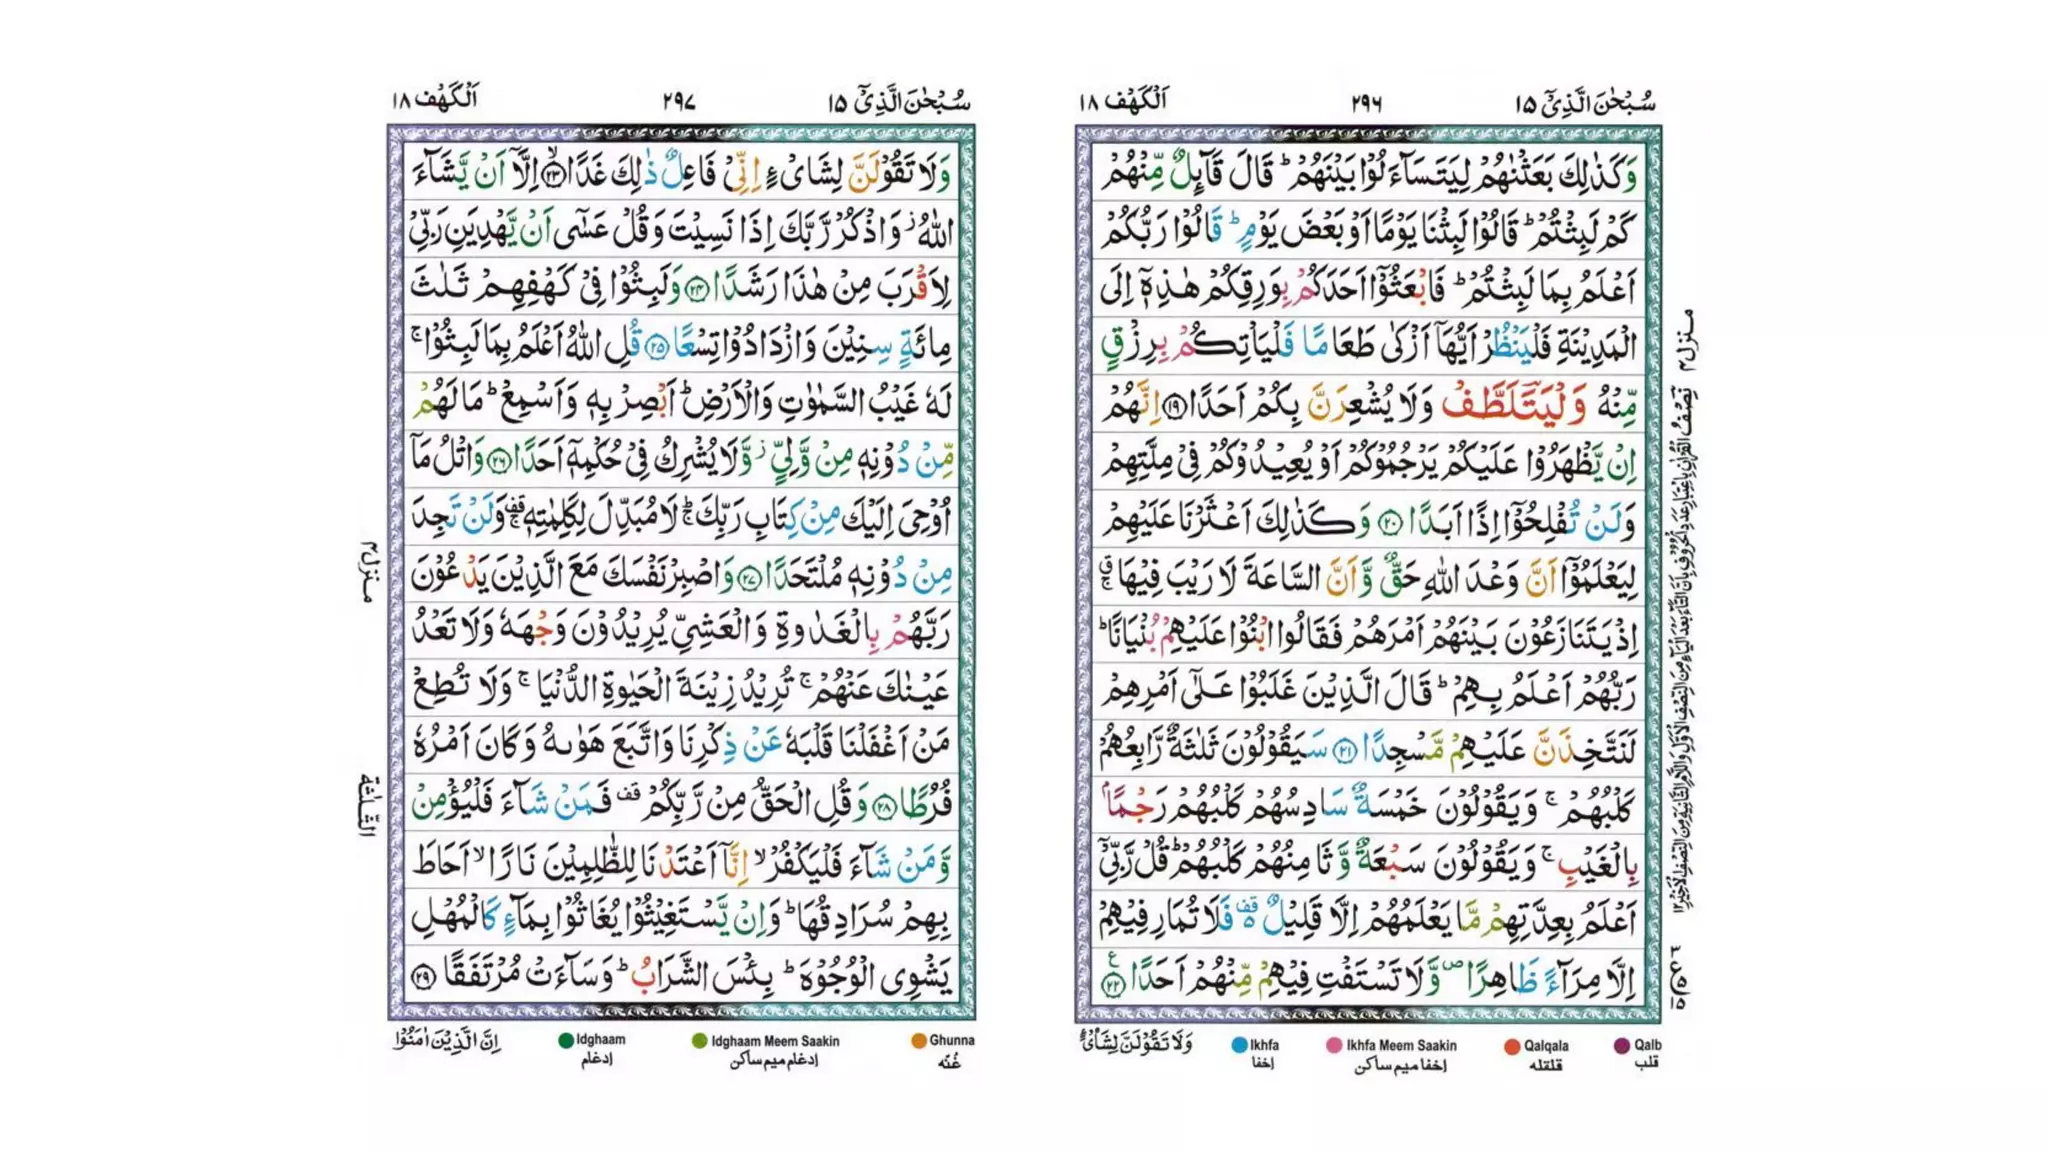 سُبْحٰنَ الَّذِىْۤ ١٥
٢٩٦
اَلْكَهْف ١٨
وَكَذٰلِكَ بَعَثْنٰهُمْ لِيَتَسَآءَلُوْا بَيْنَهُمْ ؕ قَالَ قَآئِلٌ مِّنْهُمْ
كَمْ لَبِثْتُمْ ؕ قَالُوْا لَبِثْنَا يَوْمًا اَوْ بَعْضَ يَوْمٍ ؕ قَالُوْا رَبُّكُمْ
اَعْلَمُ بِمَا لَبِثْتُمْ ؕ فَابْعَثُوْۤا اَحَدَكُمْ بِوَرِقِكُمْ هٰذِهٖۤ اِلَى
الْمَدِيْنَةِ فَلْيَنْظُرْ اَيُّهَاۤ اَزْكٰى طَعَامًا فَلْيَاْتِكُمْ بِرِزْقٍ
مِّنْهُ وَلْيَتَلَطَّفْ وَلَا يُشْعِرَنَّ بِكُمْ اَحَدًا ۝١٩ اِنَّهُمْ
اِنْ يَّظْهَرُوْا عَلَيْكُمْ يَرْجُمُوْكُمْ اَوْ يُعِيْدُوْكُمْ فِىْ مِلَّتِهِمْ
وَلَنْ تُفْلِحُوْۤا اِذًا اَبَدًا ۝٢٠ وَكَذٰلِكَ اَعْثَرْنَا عَلَيْهِمْ
لِيَعْلَمُوْۤا اَنَّ وَعْدَ اللّٰهِ حَقٌّ وَّاَنَّ السَّاعَةَ لَا رَيْبَ فِيْهَا ۚ
اِذْ يَتَنَازَعُوْنَ بَيْنَهُمْ اَمْرَهُمْ فَقَالُوا ابْنُوْا عَلَيْهِمْ بُنْيَانًا ؕ
رَبُّهُمْ اَعْلَمُ بِهِمْ ؕ قَالَ الَّذِيْنَ غَلَبُوْا عَلٰٓى اَمْرِهِمْ
لَنَتَّخِذَنَّ عَلَيْهِمْ مَّسْجِدًا ۝٢١ سَيَقُوْلُوْنَ ثَلٰثَةٌ رَّابِعُهُمْ
كَلْبُهُمْ ۚ وَيَقُوْلُوْنَ خَمْسَةٌ سَادِسُهُمْ كَلْبُهُمْ رَجْمًاۢ
بِالْغَيْبِ ۚ وَيَقُوْلُوْنَ سَبْعَةٌ وَّثَامِنُهُمْ كَلْبُهُمْ ؕ قُلْ رَّبِّىْۤ
اَعْلَمُ بِعِدَّتِهِمْ مَّا يَعْلَمُهُمْ اِلَّا قَلِيْلٌ ۵ قف فَلَا تُمَارِ فِيْهِمْ
اِلَّا مِرَآءً ظَاهِرًا ص وَّلَا تَسْتَفْتِ فِيْهِمْ مِّنْهُمْ اَحَدًا ۝٢٢ ع
منزل ٤
وَلَا تَقُوْلَنَّ لِشَاىْءٍ
Ikhfa
إخفا
Ikhfa Meem Saakin
إخفا ميم ساكن
Qalqala
قلقله
Qalb
قلب
سُبْحٰنَ الَّذِىْۤ ١٥
٢٩٧
اَلْكَهْف ١٨
وَلَا تَقُوْلَنَّ لِشَاىْءٍ اِنِّىْ فَاعِلٌ ذٰلِكَ غَدًا ۝٢٣ ۙ اِلَّاۤ اَنْ يَّشَآءَ
اللّٰهُ ز وَاذْكُرْ رَّبَّكَ اِذَا نَسِيْتَ وَقُلْ عَسٰٓى اَنْ يَّهْدِيَنِ رَبِّىْ
لِاَقْرَبَ مِنْ هٰذَا رَشَدًا ۝٢٤ وَلَبِثُوْا فِىْ كَهْفِهِمْ ثَلٰثَ
مِائَةٍ سِنِيْنَ وَازْدَادُوْا تِسْعًا ۝٢٥ قُلِ اللّٰهُ اَعْلَمُ بِمَا لَبِثُوْا ۚ
لَهٗ غَيْبُ السَّمٰوٰتِ وَالْاَرْضِ ؕ اَبْصِرْ بِهٖ وَاَسْمِعْ ؕ مَا لَهُمْ
مِّنْ دُوْنِهٖ مِنْ وَّلِىٍّ ز وَّلَا يُشْرِكُ فِىْ حُكْمِهٖۤ اَحَدًا ۝٢٦ وَاتْلُ مَاۤ
اُوْحِىَ اِلَيْكَ مِنْ كِتَابِ رَبِّكَ ؕۚ لَا مُبَدِّلَ لِكَلِمٰتِهٖ ۚقف وَلَنْ تَجِدَ
مِنْ دُوْنِهٖ مُلْتَحَدًا ۝٢٧ وَاصْبِرْ نَفْسَكَ مَعَ الَّذِيْنَ يَدْعُوْنَ
رَبَّهُمْ بِالْغَدٰوةِ وَالْعَشِىِّ يُرِيْدُوْنَ وَجْهَهٗ وَلَا تَعْدُ
عَيْنٰكَ عَنْهُمْ ۚ تُرِيْدُ زِيْنَةَ الْحَيٰوةِ الدُّنْيَا ۚ وَلَا تُطِعْ
مَنْ اَغْفَلْنَا قَلْبَهٗ عَنْ ذِكْرِنَا وَاتَّبَعَ هَوٰىهُ وَكَانَ اَمْرُهٗ
فُرُطًا ۝٢٨ وَقُلِ الْحَقُّ مِنْ رَّبِّكُمْ قف فَمَنْ شَآءَ فَلْيُؤْمِنْ
وَّمَنْ شَآءَ فَلْيَكْفُرْ ۙ اِنَّاۤ اَعْتَدْنَا لِلظّٰلِمِيْنَ نَارًا ۙ اَحَاطَ
بِهِمْ سُرَادِقُهَا ؕ وَاِنْ يَّسْتَغِيْثُوْا يُغَاثُوْا بِمَآءٍ كَالْمُهْلِ
يَشْوِى الْوُجُوْهَ ؕ بِئْسَ الشَّرَابُ ؕ وَسَآءَتْ مُرْتَفَقًا ۝٢٩
منزل ٤
الثلثة
اِنَّ الَّذِيْنَ اٰمَنُوْا
Idghaam
إدغام
Idghaam Meem Saakin
إدغام ميم ساكن
Ghunna
غُنّه